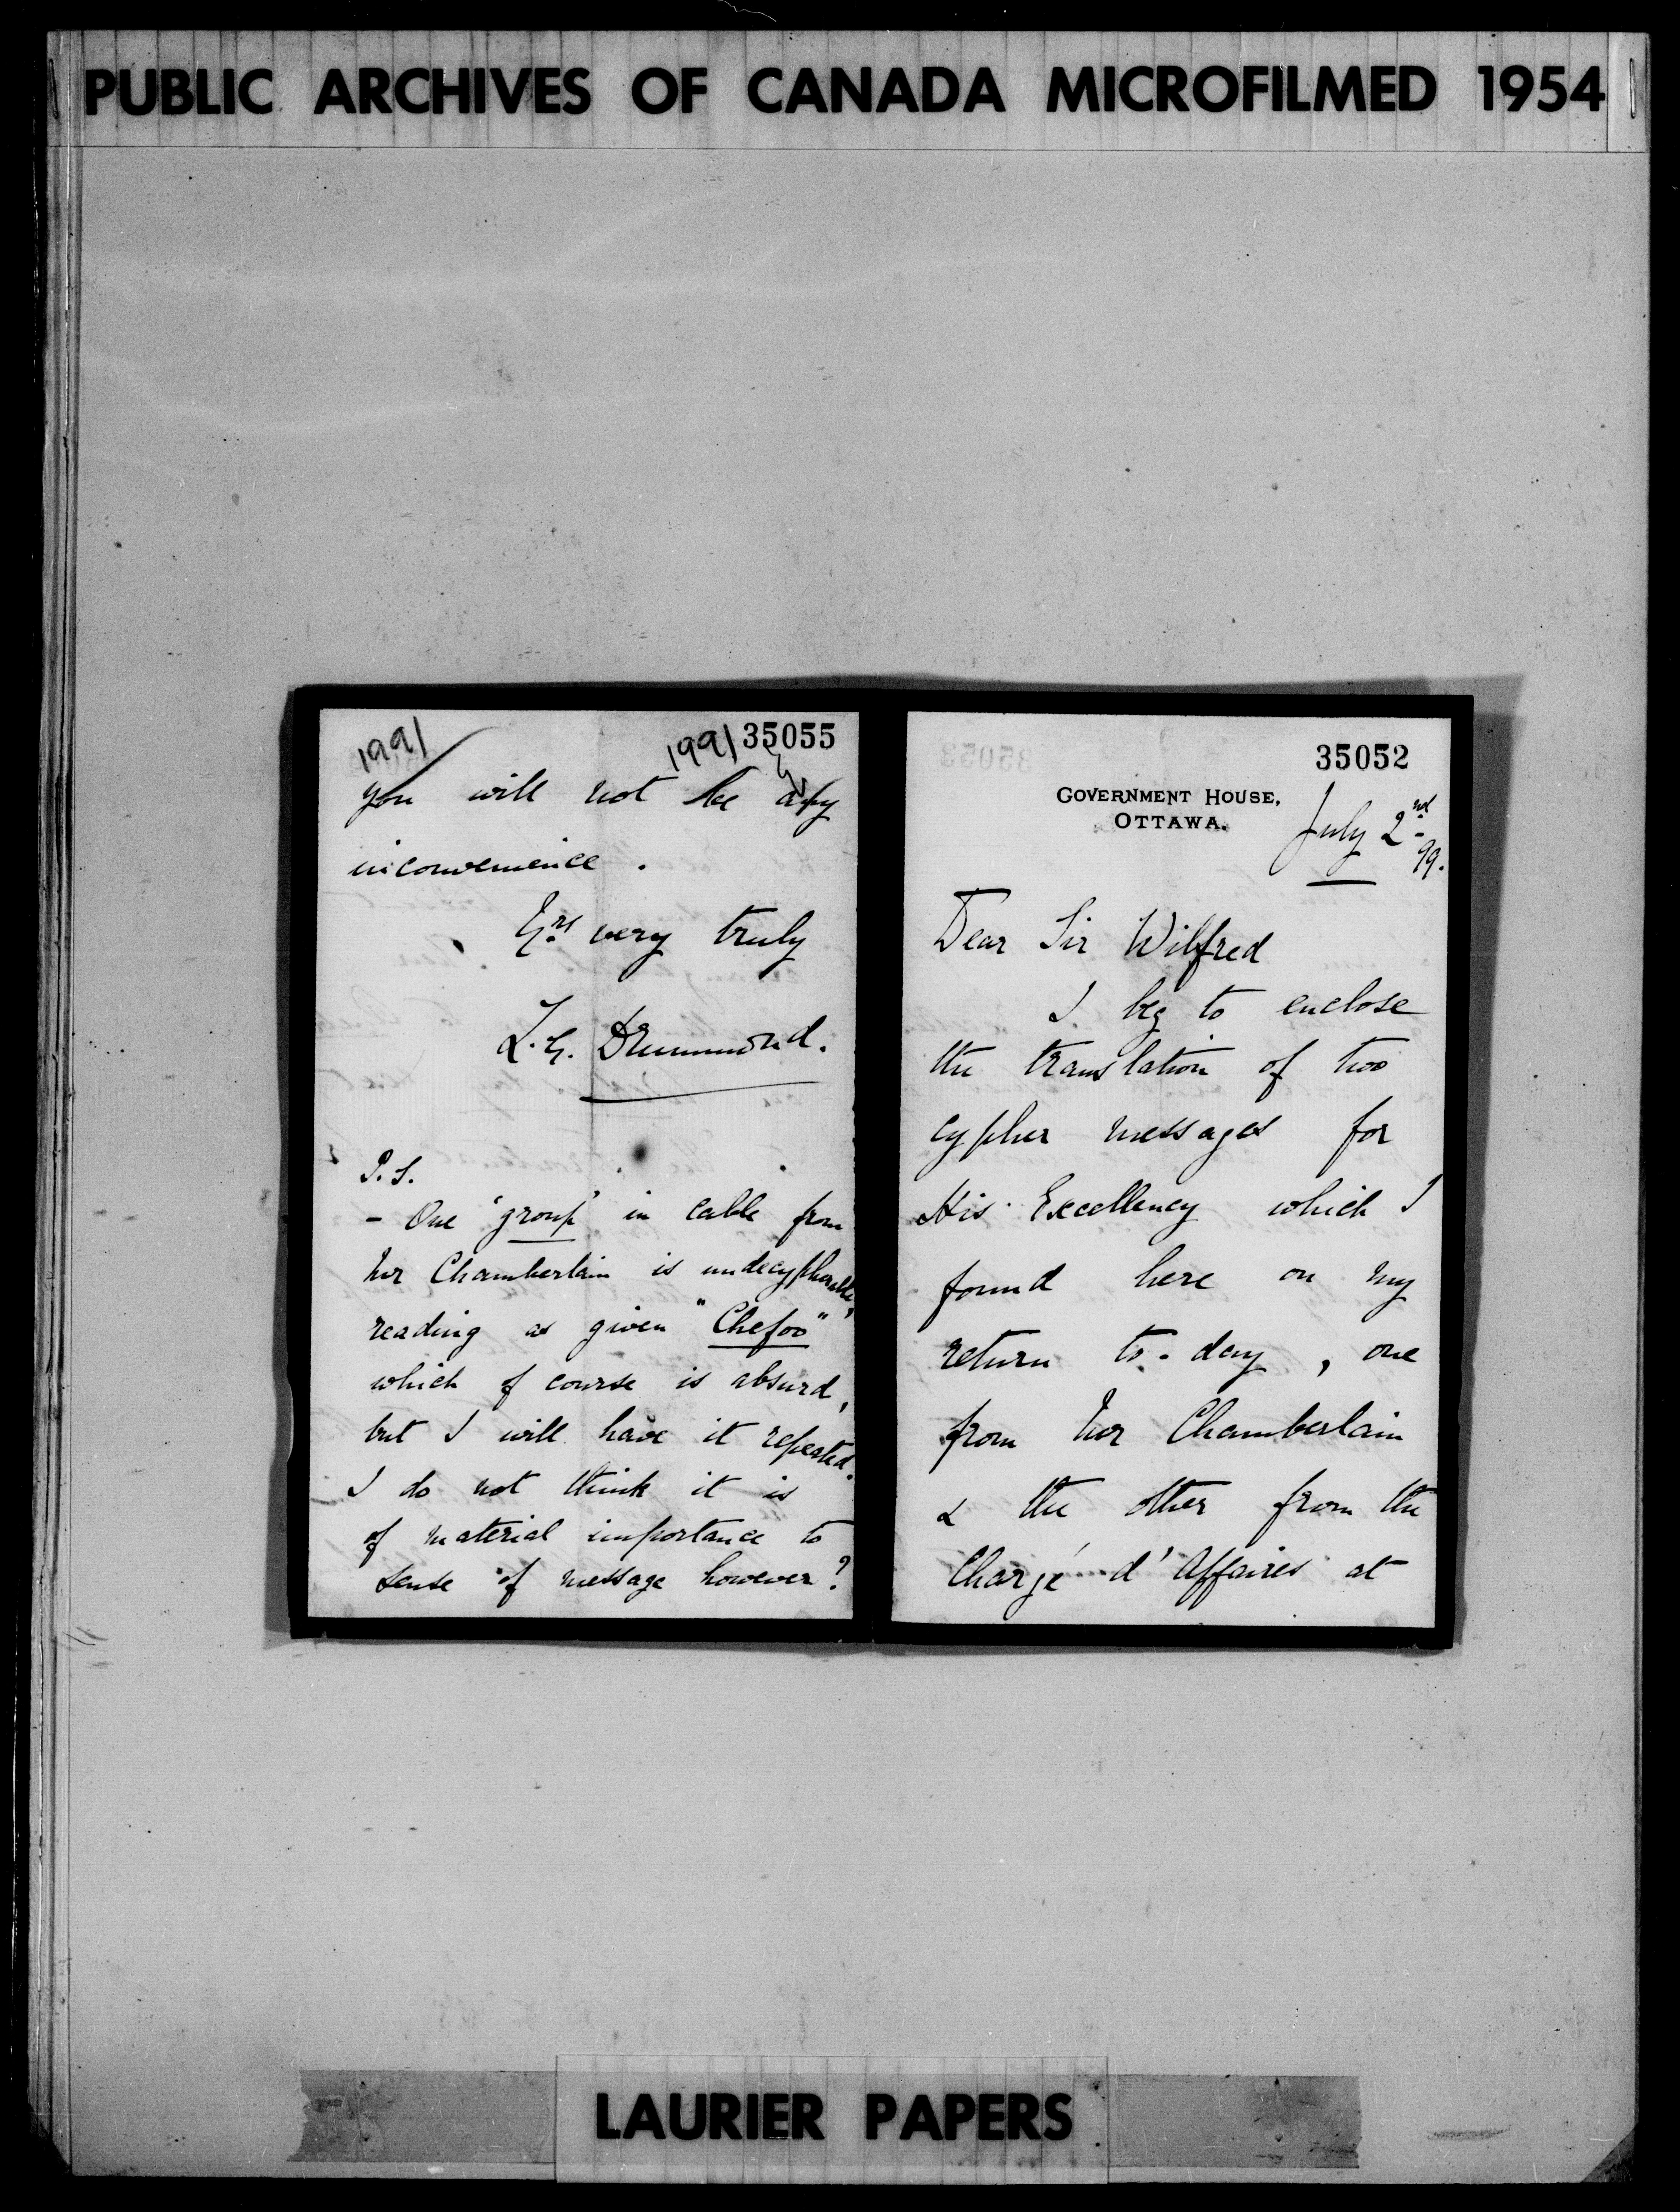 PUBLIC ARCHIVES OF CANADA MICROFILMED 1954
1991
1991 35055
you will not be any
inconvenience.
Yrs very truly
L.G. Drummond.
P.S.
- One 'group' in cable from
Mr Chamberlain is undecypherable,
reading as given "Chefoo"
which of course is absurd,
but I will have it repeated.
I do not think it is
of material importance to
sense of message however?
35052
GOVERNMENT HOUSE,
OTTAWA.
July 2nd
99.
Dear Sir Wilfred
I beg to enclose
the translation of two
cypher messages for
His Excellency which I
found here on my
return to-day, one
from Mr Chamberlain
& the other from the
Chargé d'Affaires at
LAURIER PAPERS